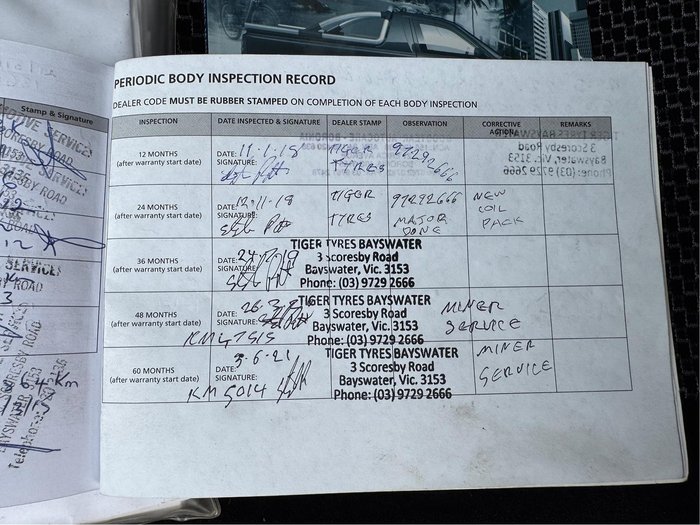 Stamp & Signature
PERIODIC BODY INSPECTION RECORD
DEALER CODE MUST BE RUBBER STAMPED ON COMPLETION OF EACH BODY INSPECTION
INSPECTION DATE INSPECTED & SIGNATURE DEALER STAMP OBSERVATION CORRECTIVE ACTION REMARKS
12 MONTHS
(after warranty start date)
DATE: 11.1.18
SIGNATURE:
TIGER
TYRES
97292666
TIGER TYRES BAYSWATER
3 Scoresby Road
Bayswater, Vic. 3153
Phone: (03) 9729 2666
24 MONTHS
(after warranty start date)
DATE: 12.11.18
SIGNATURE:
TIGER
TYRES
97292666
MAJOR
DONE
NEW
COIL
PACK
36 MONTHS
(after warranty start date)
DATE:
SIGNATURE:
TIGER TYRES BAYSWATER
3 Scoresby Road
Bayswater, Vic. 3153
Phone: (03) 9729 2666
48 MONTHS
(after warranty start date)
DATE:
SIGNATURE:
TIGER TYRES BAYSWATER
3 Scoresby Road
Bayswater, Vic. 3153
Phone: (03) 9729 2666
MINER
SERVICE
60 MONTHS
(after warranty start date)
DATE: 3.6.21
SIGNATURE:
KM 5014
TIGER TYRES BAYSWATER
3 Scoresby Road
Bayswater, Vic. 3153
Phone: (03) 9729 2666
MINER
SERVICE